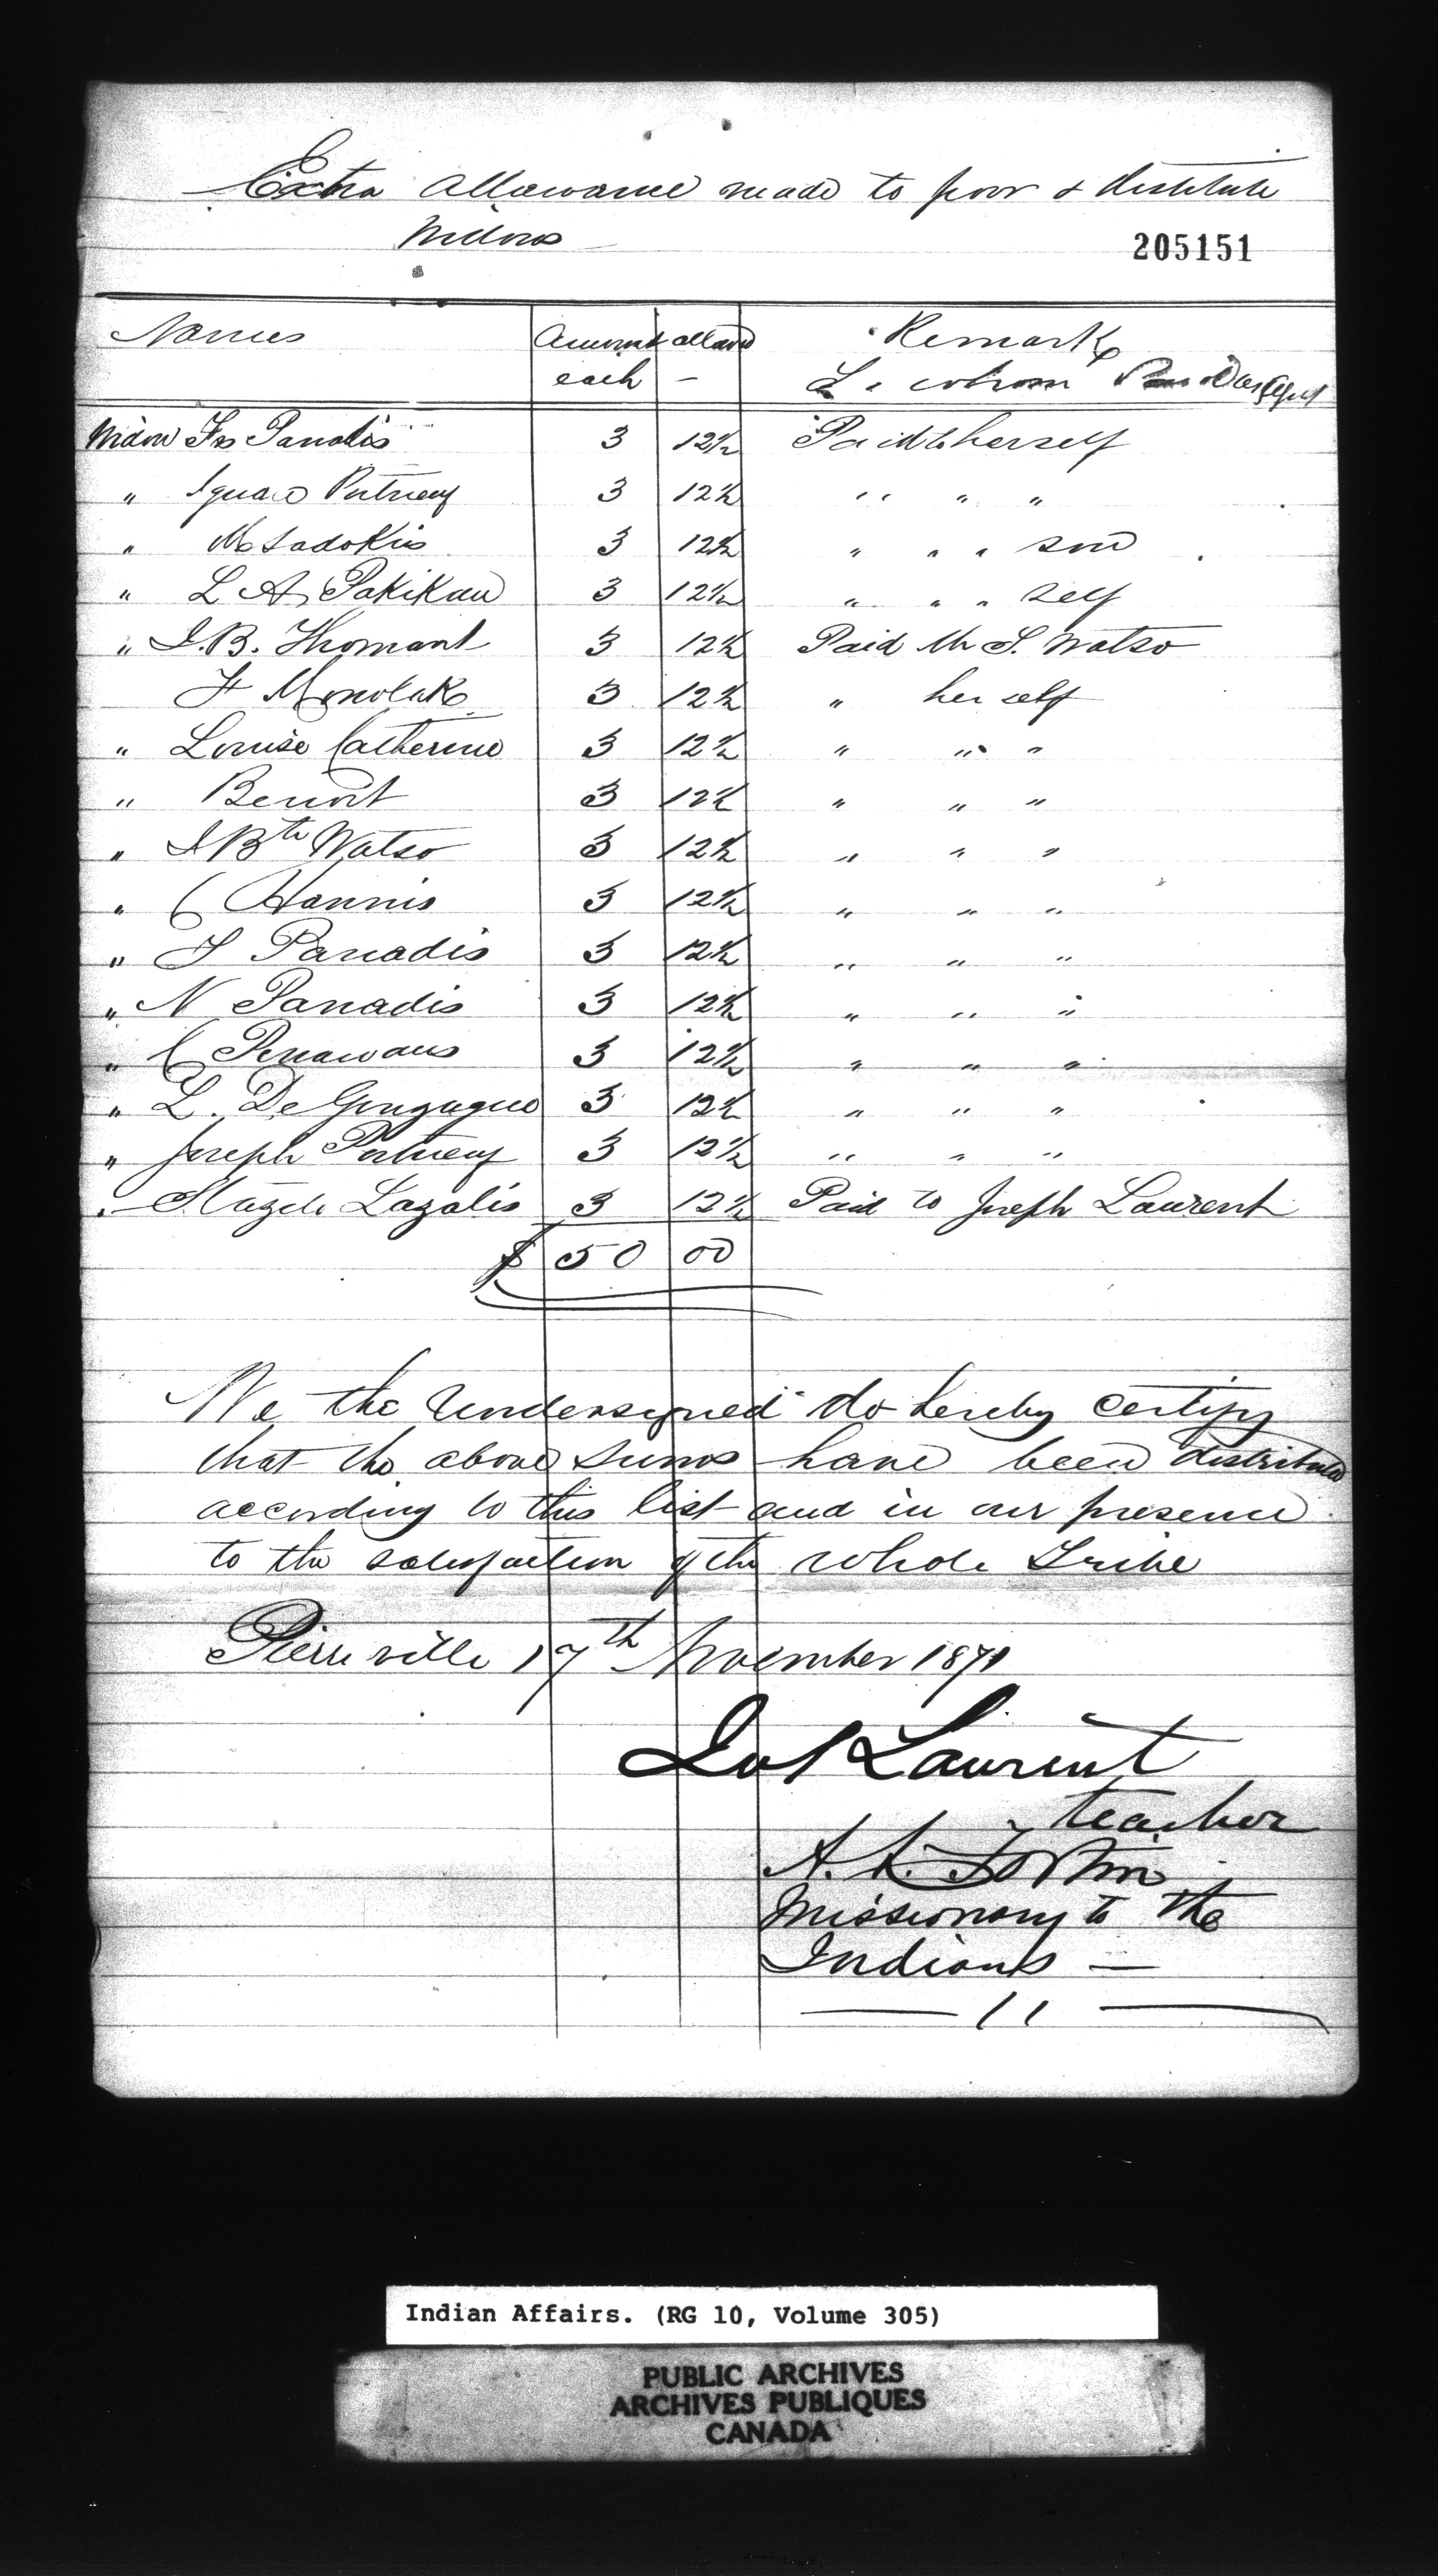 Extra Allowance made to poor & destitute
Widows
205151
Names Amount allowed Remark
each - To whom Paid
Widow Frs Panadis 3 12½ Paid to herself
" Ignace Portneuf 3 12½ " " "
" M Sadokis 3 12½ " " " son
" L A Pakikan 3 12½ " " " self
" J.B. Thomant 3 12½ Paid Mr S. Watso
F 3 12½ " her self
" Louise Catherine 3 12½ " " "
" Benoit 3 12½ " " "
" J Bte Watso 3 12½ " " "
" C Hannis 3 12½ " " "
" J Panadis 3 12½ " " "
" N Panadis 3 12½ " " "
" C Penawans 3 12½ " " "
" L. De Gonzague 3 12½ " " "
" Joseph Portneuf 3 12½ " " "
" Lazalis 3 12½ Paid to Joseph Laurent
$ 50 00
We the Undersigned do hereby certify
that the above sums have been distributed
according to this list and in our presence
to the satisfaction of the whole Tribe
Pierreville 17th November 1871
Jos Laurent
teacher
A. L. Fortin
Missionary to the
Indians —
— " —
Indian Affairs. (RG 10, Volume 305)
PUBLIC ARCHIVES
ARCHIVES PUBLIQUES
CANADA